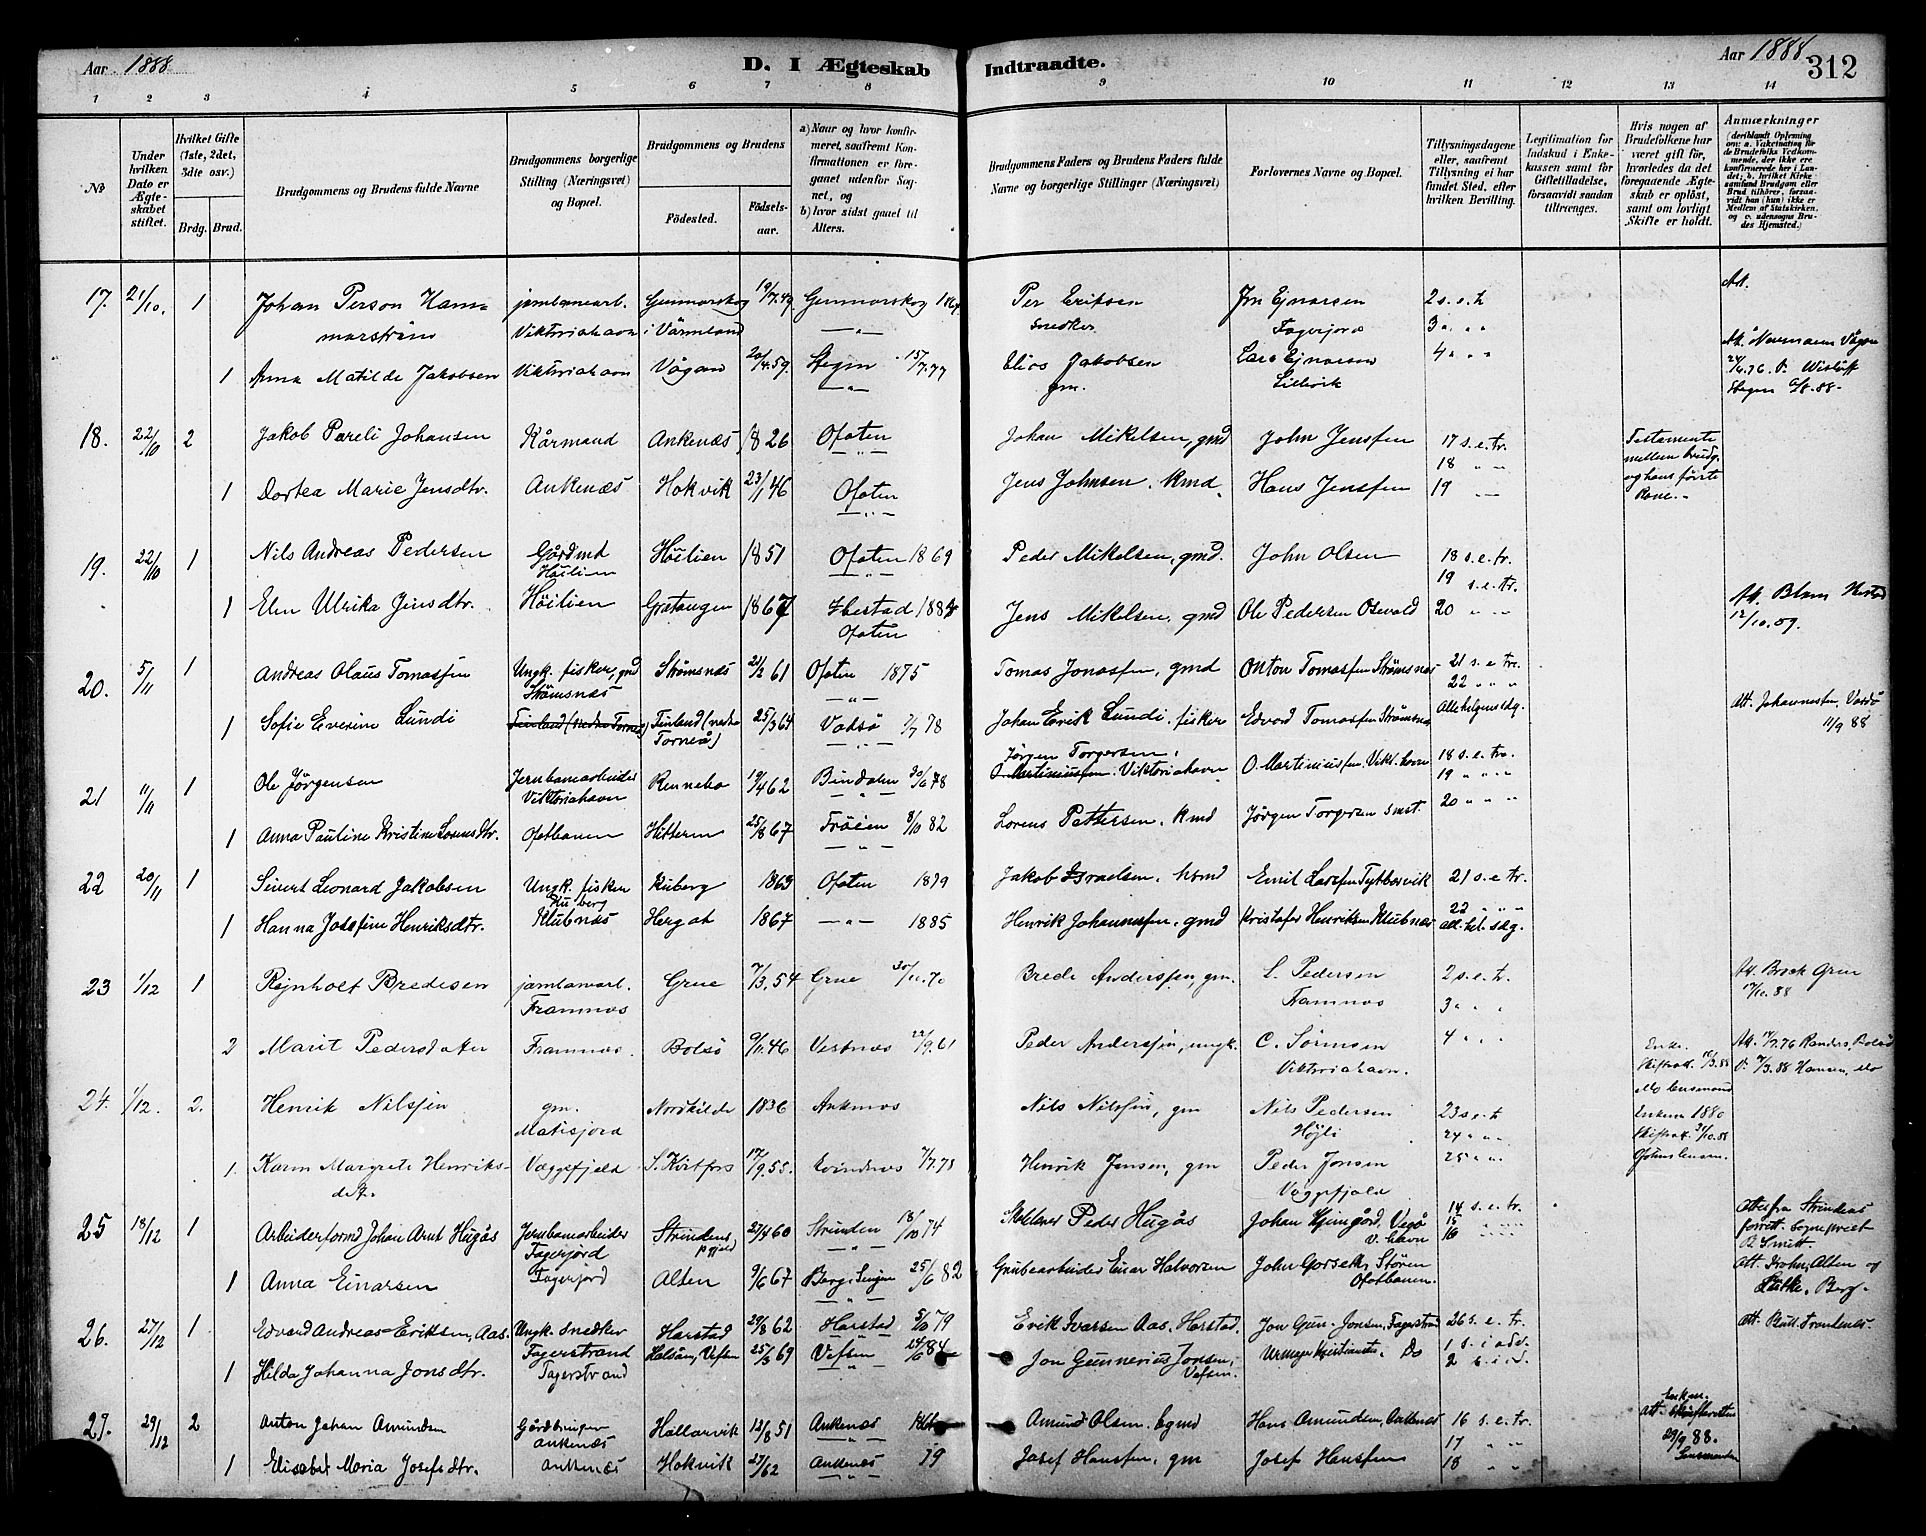 Aar 1888
D. I Ægteskab
Indtraadte.
Aar 1888
312
1 2 3 4 5 6 7 8 9 10 11 12 13 14
No
Under hvilken Dato er Ægteskabet stiftet.
Hvilket Gifte (1ste, 2det, 3dte osv.)
Brdg. Brud.
Brudgommens og Brudens fulde Navne
Brudgommens borgerlige Stilling (Næringsvei) og Bopæl.
Brudgommens og Brudens
Födested.
Födselsaar.
a) Naar og hvor konfirmeret, saafremt Konfirmationen er foregaaet udenfor Sognet, og
b) hvor sidst gaaet til Alters.
Brudgommens Faders og Brudens Faders fulde Navne og borgerlige Stillinger (Næringsvei)
Forlovernes Navne og Bopæl.
Tillysningsdagene eller, saafremt Tillysning ei har fundet Sted, efter hvilken Bevilling.
Legitimation for Indskud i Enkekassen samt for Giftetilladelse, forsaavidt saadan tiltrænges.
Hvis nogen af Brudefolkene har været gift för, hvorledes da det foregaaende Ægteskab er oplöst, samt om lovligt Skifte er holdt.
Anmærkninger
(deriblandt Oplysning om: a. Vakcination for de Brudefolks Vedkommende, der ikke ere konfirmerede her i Landet; b. hvilket Kirkesamfund Brudgom eller Brud tilhörer, forsaavidt han (hun) ikke er Medlem af Statskirken, og c. udensogns Brudes Hjemsted.)
17. 21/10. 1 Johan Person Ham- jernbanearb. Gunnarskog 19/7.49. Gunnarskog Per Eriksen Jon Ejnarsen 2 s.e.tr. Att.
marström Viktoriahavn i Värmland —"— Snedker Fagerjord 3 " "
1 Anna Matilde Jakobsen Viktoriahavn Vågan 20/4.59. Stegen 15/7.77 Elias Jakobsen Lars Ejnarsen 4 " "
—"— gm. Lillevik
18. 22/10 2 Jakob Pareli Johansen Kårmand Ankenæs 1826 Ofoten Johan Mikelsen, gmd John Jenssen 17 s.e.tr. Testamente
—"— 18 " " mellem brudg.
1 Dortea Marie Jensdtr. Ankenæs Hokvik 23/1 46 Ofoten Jens Johnsen, kmd. Hans Jenssen 19 —" og hans förste Kone.
19. 22/10 1 Nils Andreas Pedersen Gårdmd Höilien 1851 Ofoten 1869 Peder Mikelsen, gmd. John Olsen 18 s.e.tr.
Höilien 19 s.e.tr.
1 Elen Ulrika Jensdtr. Höilien Gratangen 1867 Ibestad Jens Mikelsen, gmd Ole Pedersen Osevold 20 " "
Ofoten
20. 5/11 1 Andreas Olaus Tomassen Ungk. fisker, gmd Strömsnæs 21/2 61 Ofoten 1875 Tomas Jonassen, gmd Anton Tomassen Strömsnæs 21 s.e.tr.
Strömsnæs 22 " "
1 Sofie Everine Lundi Finland (nedre Torneå) Finland (nedre Torneå) 25/3 64 Vadsö 7/7 78 Johan Erik Lundi, fisker Edvard Tomassen Strömsnæs Allehelgensdg. Att. Johannessen, Vardö 11/9 88
21 11/11 1 Ole Jörgensen Jernbanearbeider Rennebo 19/4 62 Bindalen 30/6 78 Jörgen Torgersen, Viktoriahavn O. Martiniussen Vikt.havn 18 s.e.tr.
Viktoriahavn 19 " "
1 Anna Pauline Kristine Lorensdtr. Ofotbanen Hitteren 25/8 67 Fröien 8/10 82 Lorens Pettersen, kmd Jörgen Torgersen smst. 20 " "
22 20/11 1 Sivert Leonard Jakobsen Ungk. fisker Kuberg 1863 Ofoten 1879 Jakob Israelsen, hsmd Emil Larssen Tyttebærvik 21 s.e.tr.
Kuberg
1 Hanna Josefine Henriksdtr. Klubnæs Hergot 1867 —"— 1885 Henrik Johannessen, gmd Kristofer Henriksen Klubnæs 22 " "
all.hel.sdg.
23 1/12 1 Rejnholt Bredesen jernbanearb. Grue 7/3.54 Grue Brede Anderssen, gm. L. Pedersen 2 s.e.tr. Att. Brock Grue
Framnæs Framnæs 3 " " 17/10.88
2 Marit Pedersdatter Framnæs. Bolsö 9/11.46 Vestnæs 22/9.61 Peder Anderssen, ungk. C. Sörensen 4 " " Enke. Att. 17/7.76 Randers, Bolsö
Viktoriahavn.
24. 1/12. 2. Henrik Nilssen gm. Nordkilde 1836 Ankenæs Nils Nilssen, gm Nils Pedersen 23 s.e.tr. Enkem. 1880
Matisjord Höjli 24 " "
1. Karen Margrete Henriks- Væggefjeld S. Kirtfors 17/9.55. Evindnæs 7/7.78 Henrik Jensen, gm Peder Jonsen 25 " "
dtr. Væggefjeld
25 18/12 1 Arbeiderformd Johan Arnt Hugås Jernbanearbeider Strindens 27/4 60 Strinden 18/10 74 Peder Hugås Johan Hjemgård, Vegö 14 s.e.tr. Att. fra Strindens
Fagerjord pgjeld V. havn 15 " " forrett. Sogneprest
16 B. Smitt.
1 Anna Einarsen Fagerjord Alten 9/6 67 Berg i Senjen 25/6 82 Grubearbeider Einar Halvorsen John Gorseth, Stören Att. Alten og
Ofotbanen. Berg.
26. 27/12 1 Edvard Andreas Eriksen, Aas. Ungk. Snedker Harstad 29/8 62 Harstad 5/10 79 Erik Ivarsen Aas, Harstad. Jon Gun. Jonsen, Fagerstrand 26 s.e.tr. Att. Bull Trondenæs.
Fagerstrand
1 Hilda Johanna Jonsdtr. Fagerstrand Halsön, Vefsen 25/3 69 Vefsen 24/6 84 Jon Gunnerius Jonsen, Urmager Kristiansen, Do 1 s. i adv.
Vefsen. 2 s. i ad.
27. 29/12 2 Anton Johan Amundsen Gårdbruger Hallarvik 12/8 51 Ankenæs Amund Olsen, Egmd Hans Amundsen, Ankenæs 16 s.e.tr. Enkem.
Ankenæs 17 " " Att. Skifteretten
1 Elisabet Maria Josefsdtr. Ankenæs Hokvik 27/ 62 Ankenæs 79 Josef Hanssen, gm Josef Hanssen 18 " " 29/9 88.
Lensmanden